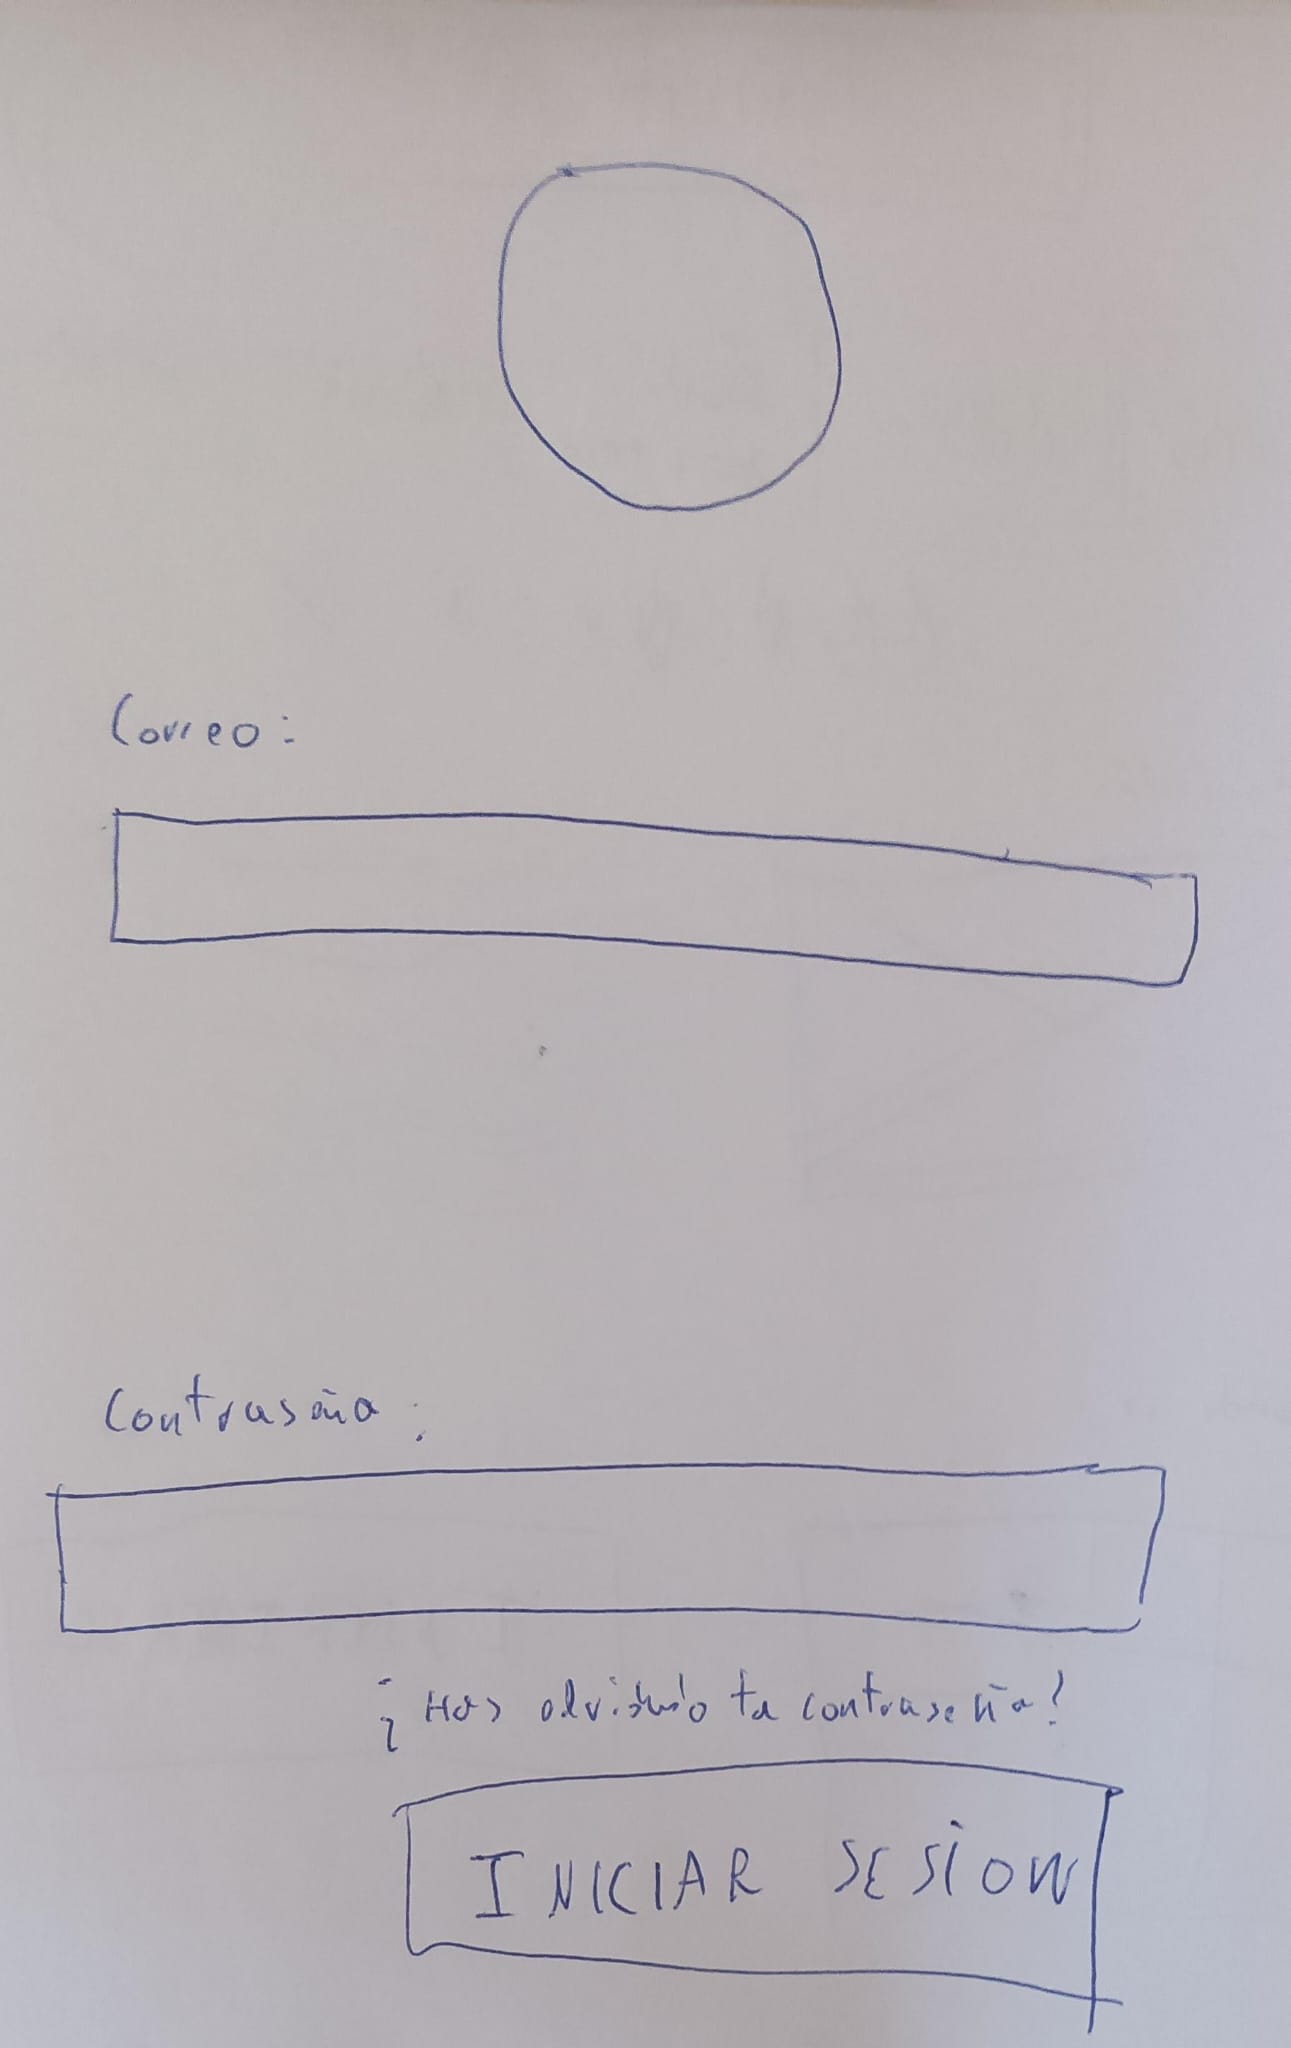 Correo:
Contraseña:
¿Has olvidado tu contraseña?
INICIAR SESION